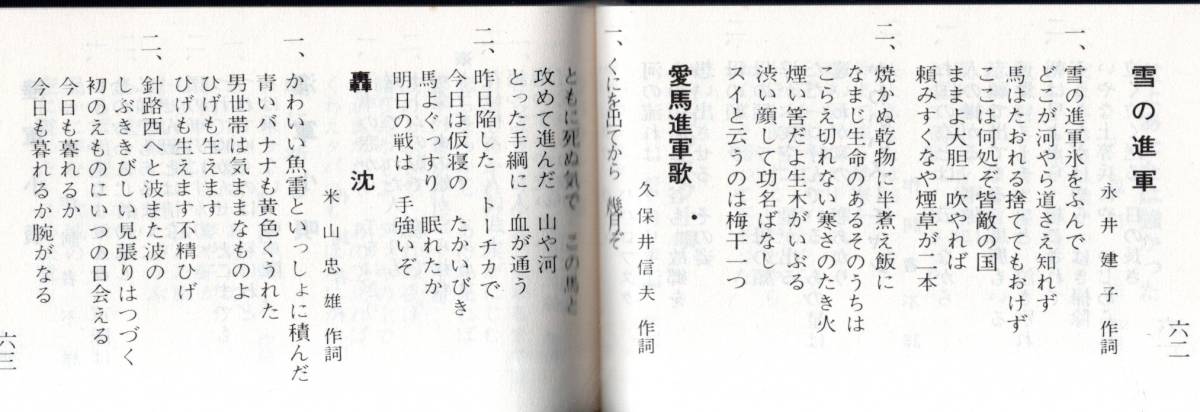 六二
雪の進軍
永井建子 作詞
一、雪の進軍氷をふんで
どこが河やら道さえ知れず
馬はたおれる捨ててもおけず
ここは何処ぞ皆敵の国
ままよ大胆一吹やれば
頼みすくなや煙草が二本
二、焼かぬ乾物に半煮え飯に
なまじ生命のあるそのうちは
こらえ切れない寒さのたき火
煙い筈だよ生木がいぶる
渋い顔して功名ばなし
スイと云うのは梅干一つ
愛馬進軍歌・
久保井信夫 作詞
一、くにを出てから 幾月ぞ
ともに死ぬ気で この馬と
攻めて進んだ 山や河
とった手綱に 血が通う
二、昨日陥した トーチカで
今日は仮寝の たかいびき
馬よぐっすり 眠れたか
明日の戦は 手強いぞ
轟沈
米山忠雄 作詞
一、かわいい魚雷といっしょに積んだ
青いバナナも黄色くうれた
男世帯は気ままなものよ
ひげも生えます
ひげも生えます不精ひげ
二、針路西へと波また波の
しぶききびしい見張りはつづく
初のえものにいつの日会える
今日も暮れるか
今日も暮れるか腕がなる
六三